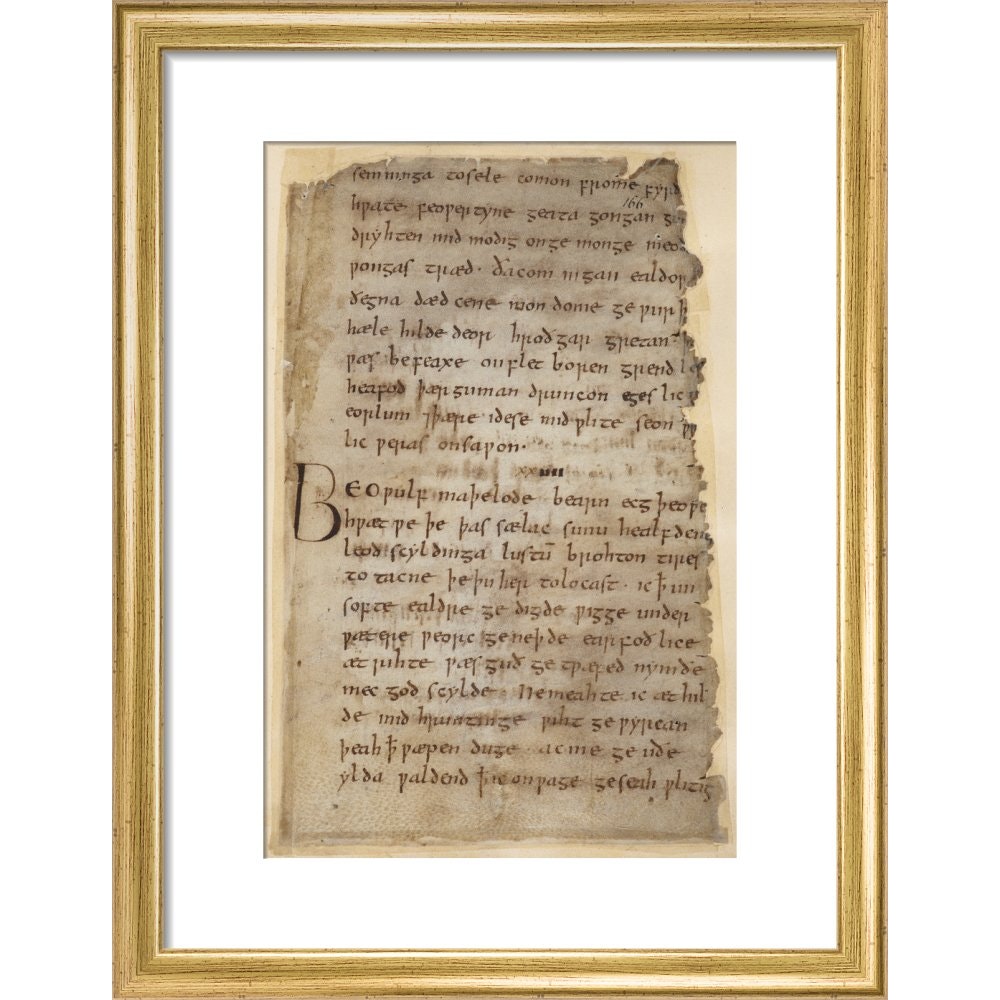 semninga tosele comon frome fyrd
166
hƿate feoƿertyne geata gongan
dryhten mid modig onge monge meo
ƿongas træd · ða com in gan ealdor
ðegna dæd cene mon dome ge ƿur þ
hæle hilde deor hroðgar gretan ·
ƿæs be feaxe on flet boren grend
heafod þær guman druncon eges lic
eorlum ⁊ þære idese mid ƿlite seon
lic ƿeras onsaƿon ·
xxiiii
BEOƿulf maþelode bearn ecg þeoƿes
hƿæt ƿe þe þas sælac sunu healfden
leod scyldinga lustū brohton tires
to tacne þe þu her tolocast · ic ꝥ un
softe ealdre ge digde ƿigge under
ƿætere ƿeorc ge neþde earfoð lice
æt rihte ƿæs guð ge tƿæfed nymðe
mec god scylde · Ne meahte ic æt hil
de mid hruntinge ƿiht ge ƿyrcan
þeah ꝥ ƿæpen duge · ac me ge uðe
ylda ƿaldend ꝥ ic on ƿage geseah ƿlitig